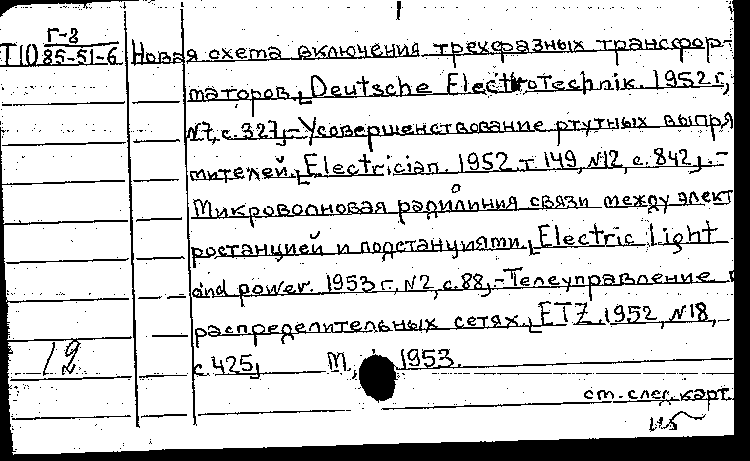 Г-8
Т(10) 85-51-6 Новая схема включения трехфазных трансфор-
маторов, [Deutsche Electrotechnik. 1952 г.,
№7, с. 327], - Усовершенствование ртутных выпря
мителей, [Electrician. 1952. т. 149, №12, с. 842], . -
Микроволновая радиолиния связи между элект
ростанцией и подстанциями, [Electric light
and power. 1953 г., №2, с. 88], - Телеуправление в
распределительных сетях, [ETZ. 1952, №18,
с. 425] М, 1953.
12
ст. след. карт.